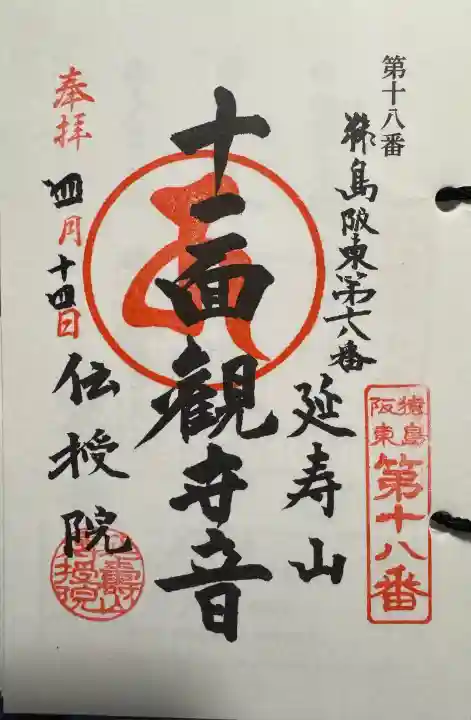 第十八番
猿島阪東第十八番
延寿山
猿島
阪東
第十八番
十一面観世音
奉拝
四月十四日
伝授院
延壽山
伝授院